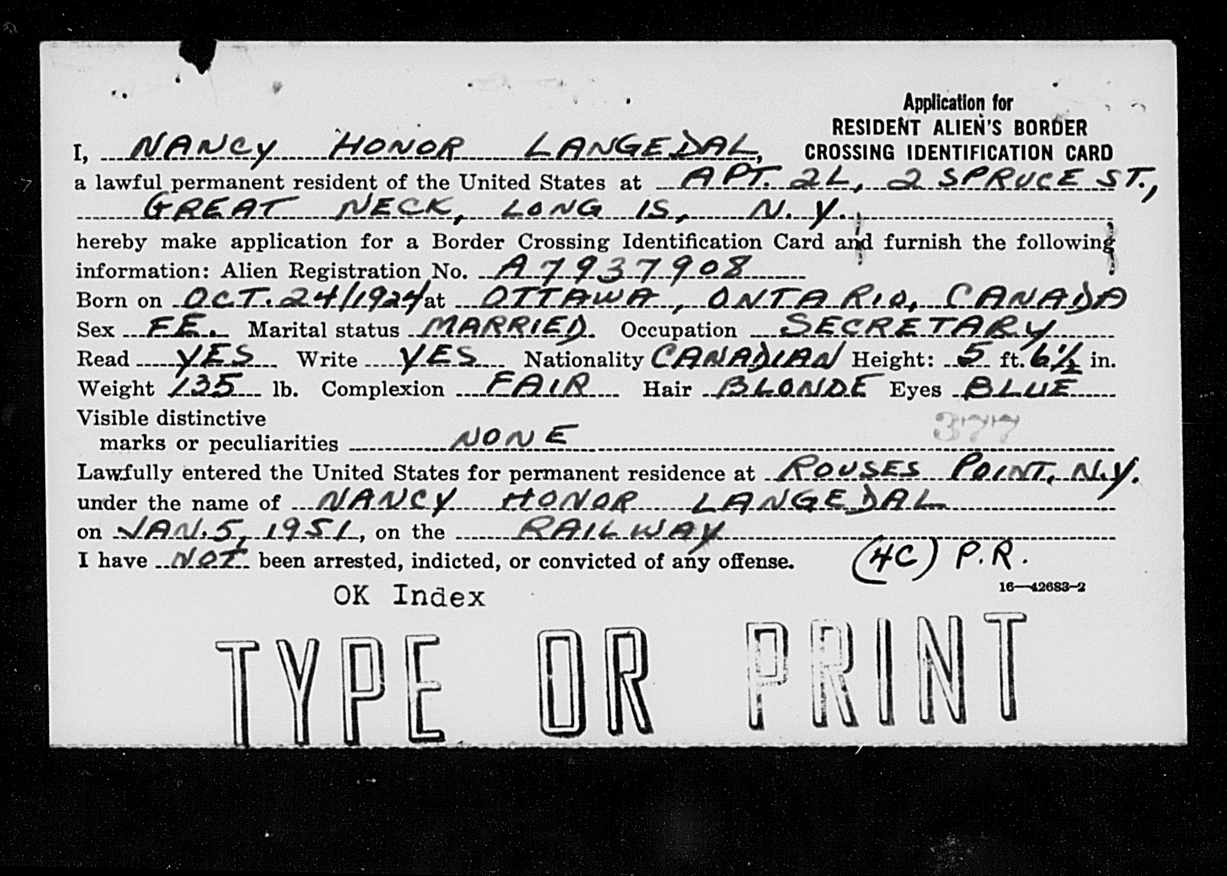 Application for
RESIDENT ALIEN'S BORDER
CROSSING IDENTIFICATION CARD
I, NANCY HONOR LANGEDAL,
a lawful permanent resident of the United States at APT. 2L, 2 SPRUCE ST.,
GREAT NECK, LONG IS, N.Y.
hereby make application for a Border Crossing Identification Card and furnish the following
information: Alien Registration No. A7937908
Born on OCT. 24/1924 at OTTAWA, ONTARIO, CANADA
Sex FE. Marital status MARRIED. Occupation SECRETARY
Read YES Write YES Nationality CANADIAN Height: 5 ft. 6½ in.
Weight 135 lb. Complexion FAIR Hair BLONDE Eyes BLUE
Visible distinctive
marks or peculiarities NONE 377
Lawfully entered the United States for permanent residence at ROUSES POINT, N.Y.
under the name of NANCY HONOR LANGEDAL
on JAN. 5, 1951, on the RAILWAY
I have NOT been arrested, indicted, or convicted of any offense. (4C) P.R.
16—42683-2
OK Index
TYPE OR PRINT